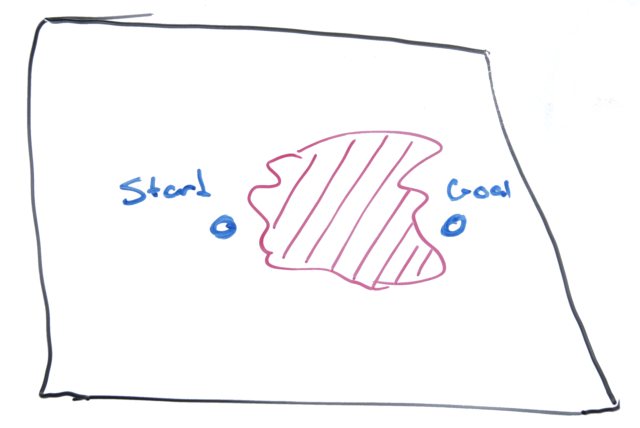 Start
Goal